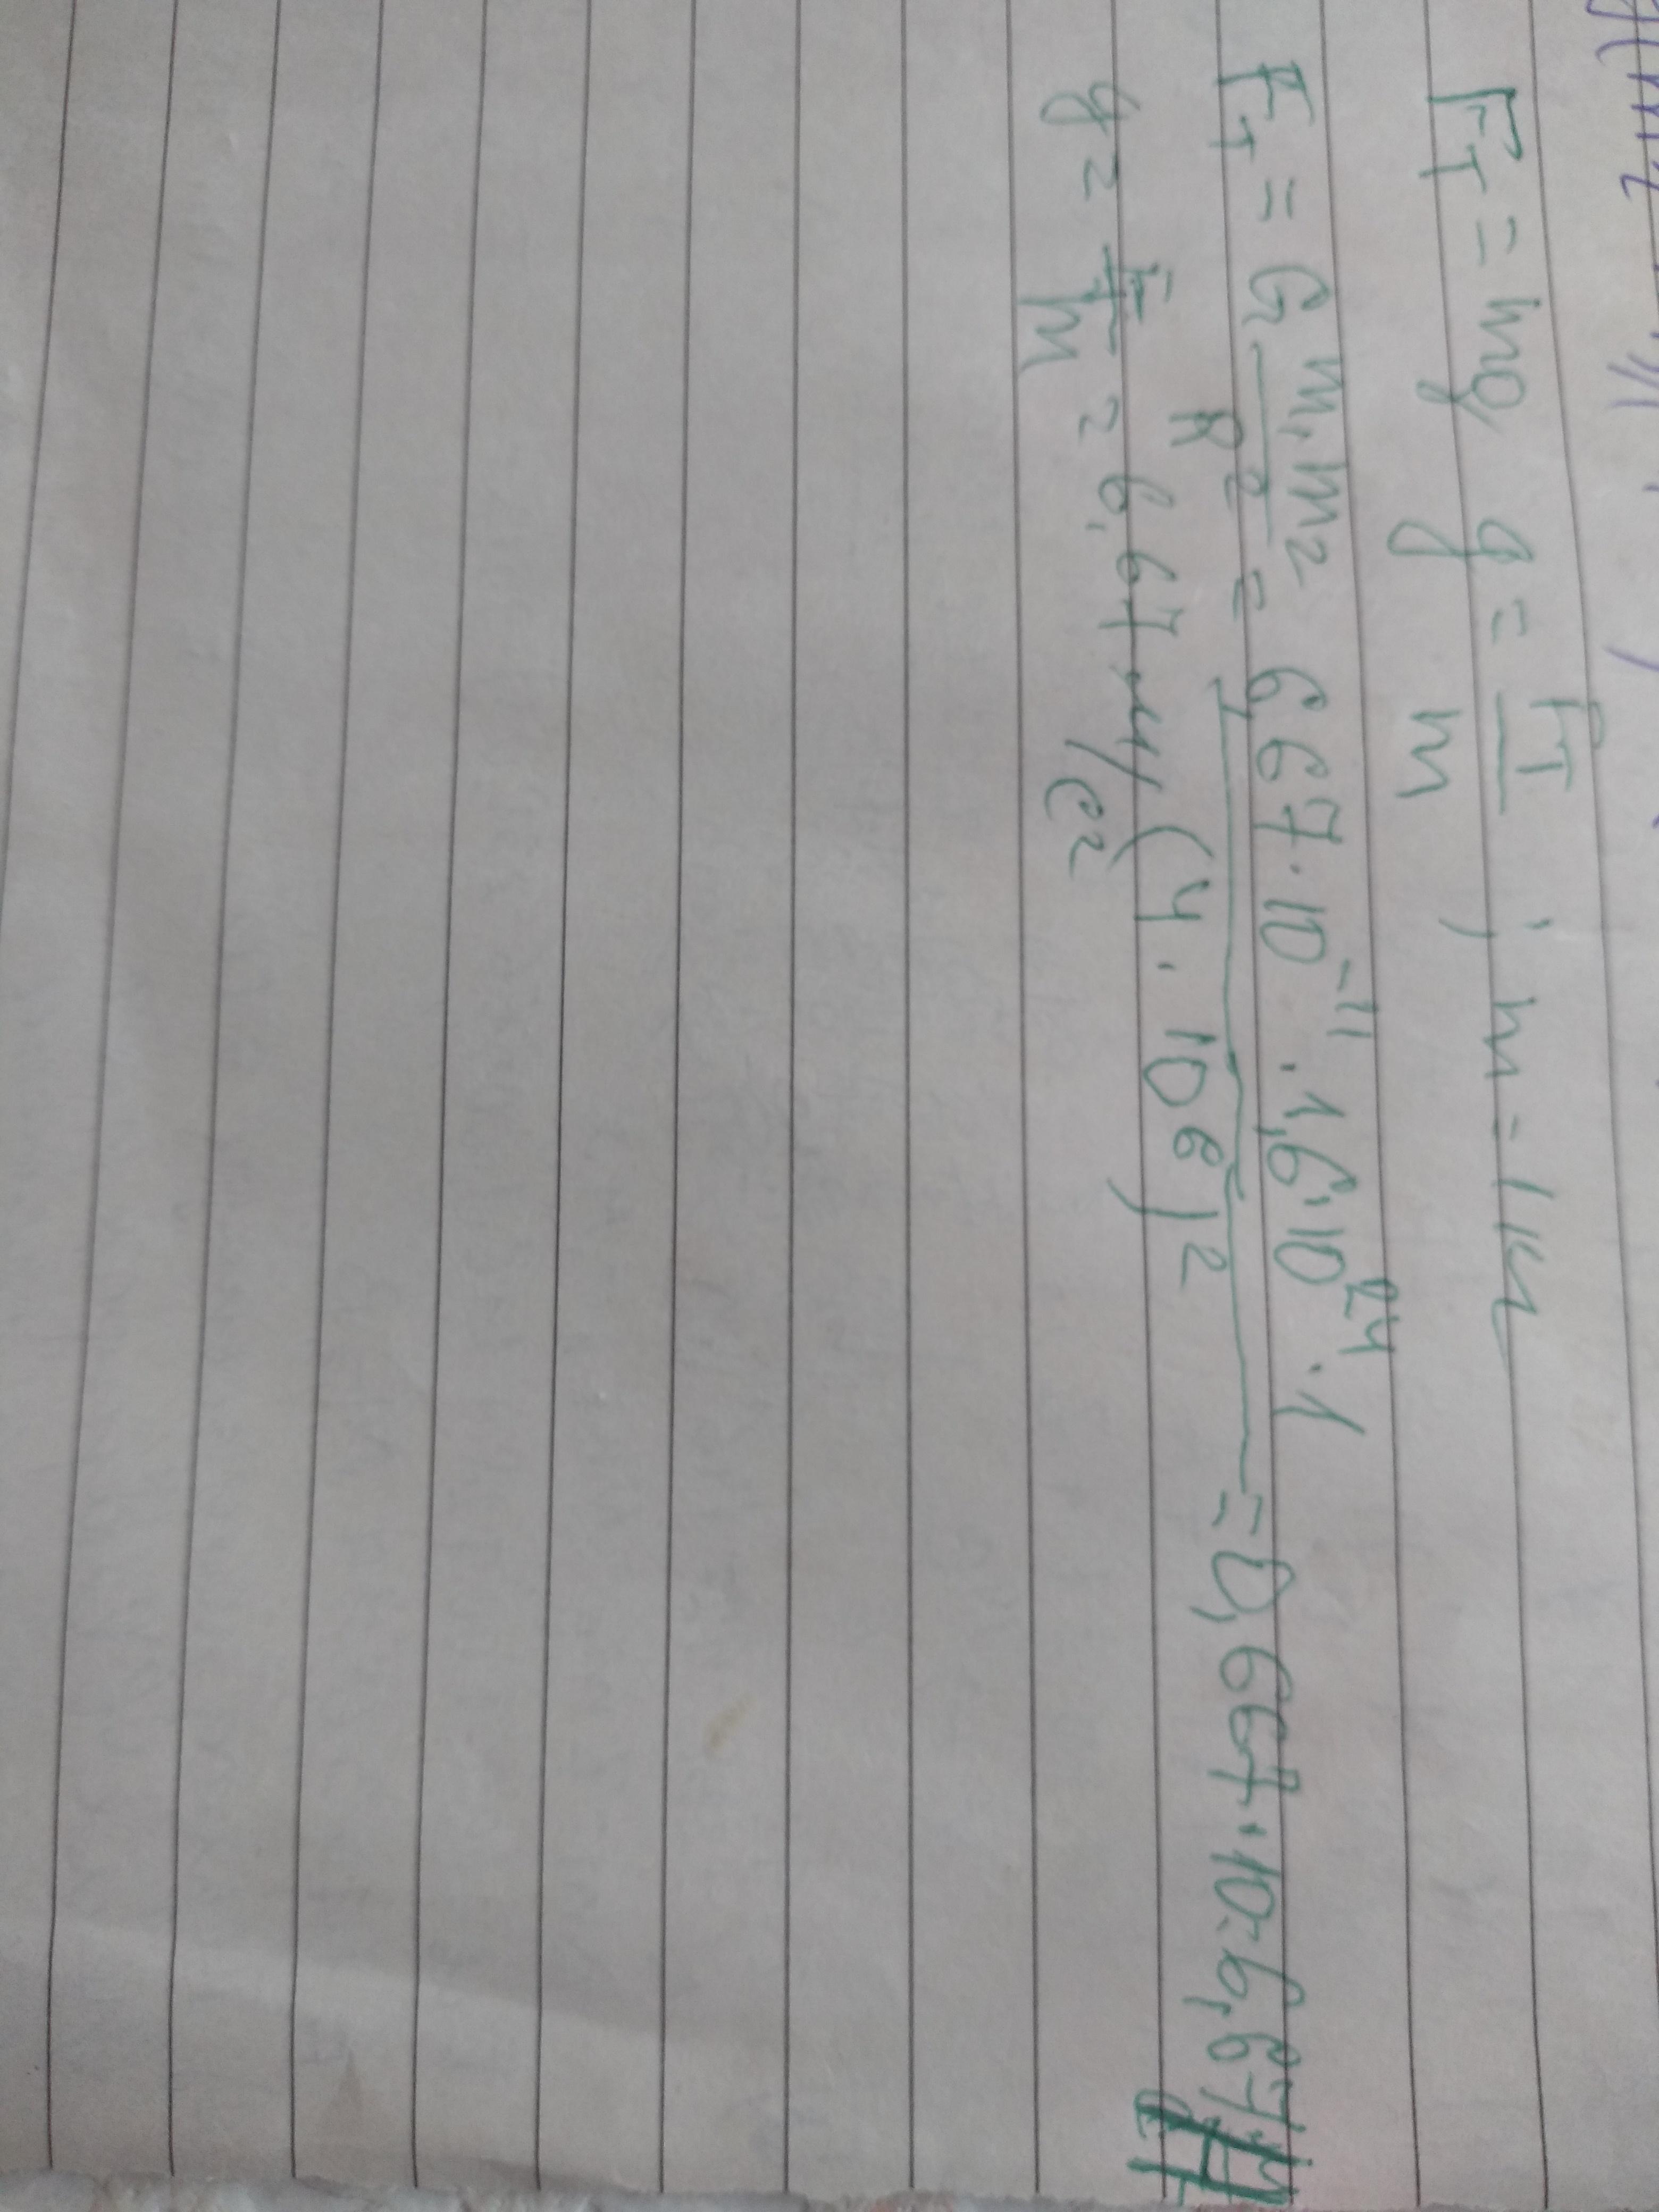 Fт = mg g = Fт/m ; m = 1 кг
Fт = G m₁m₂/R² = 6,67·10⁻¹¹·1,6·10²⁴·1/(4·10⁶)² = 0,667·10=6,67
g = F/m = 6,67 м/с²